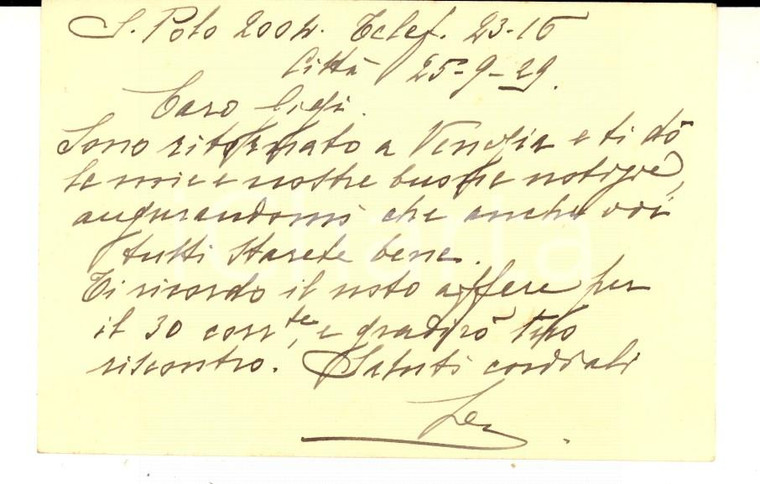 S. Polo 2004. Telef. 23-16
Città 25-9-29.
Caro Gigi.
Sono ritornato a Venezia e ti dò
le mie e nostre buone notizie,
augurandomi che anche voi
tutti starete bene.
Ti ricordo il noto affere per
il 30 corr.te, e gradirò tuo
riscontro. Saluti cordiali